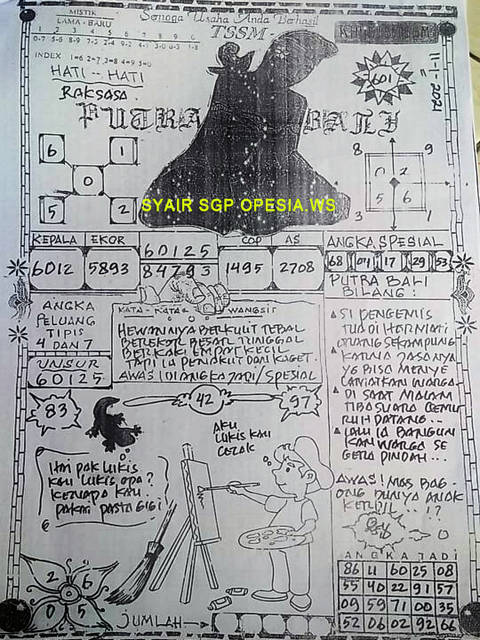 MISTIK
LAMA - BARU
Semoga Usaha Anda Berhasil
TSSM
1 2 3 4 5 6 7 8 9 0
INDEX 1=6 2=7 3=8 4=9 5=0
HATI - HATI
RAKSASA
PUTRA BALI
601
11-1-2021
6 1
0
5 2
8 9
0 2
5 6
3 1
SYAIR SGP OPESIA.WS
KEPALA EKOR
6012 5893
60125
84793
COP AS
1495 2708
ANGKA SPESIAL
68 07 17 29 53
PUTRA BALI
BILANG:
ANGKA
PELUANG
TIPIS
4 DAN 7
UNSUR
60125
KATA - KATA WANGSIT
HEWANNYA BERKULIT TEBAL
BEREKOR BESAR TUNGGAL
BERKAKI EMPAT KECIL
TAPI IA PENAKUT DAN KAGET.
AWAS! DIANGKA JADI/SPESIAL
SI PENGEMIS
TUA DI HORMATI
ORANG SEKAMPUNG
KARNA JASANYA
YG BISA MENYE
LAMATKAN WARGA
DI SAAT MALAM
TIBA SUARA GEMU
RUH DATANG..
LALU IA BANGUN
KAN WARGA SE
GERA PINDAH...
83
42
97
AKU
LUKIS KAU
CICAK
HAI PAK LUKIS
KAU LUKIS APA?
KENAPA KAU
PAKAI PASTA GIGI
AWAS! MAS BAG-
ONG PUNYA ANAK
KERDIL...!?
2 6
0 5
JUMLAH
ANGKA JADI
86 11 60 25 08
55 40 22 91 57
09 59 71 00 35
52 06 02 92 66